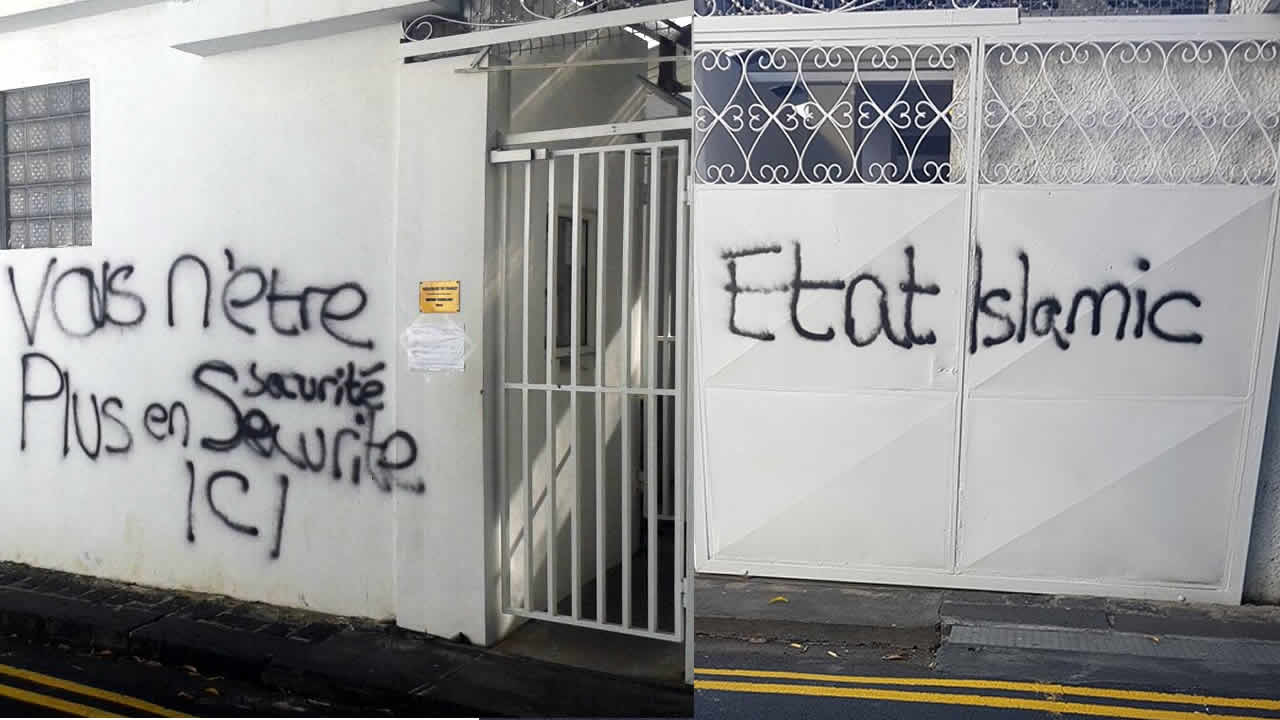 Vous n'être
Plus en Securite
sacurité
ICI
Etat Islamic